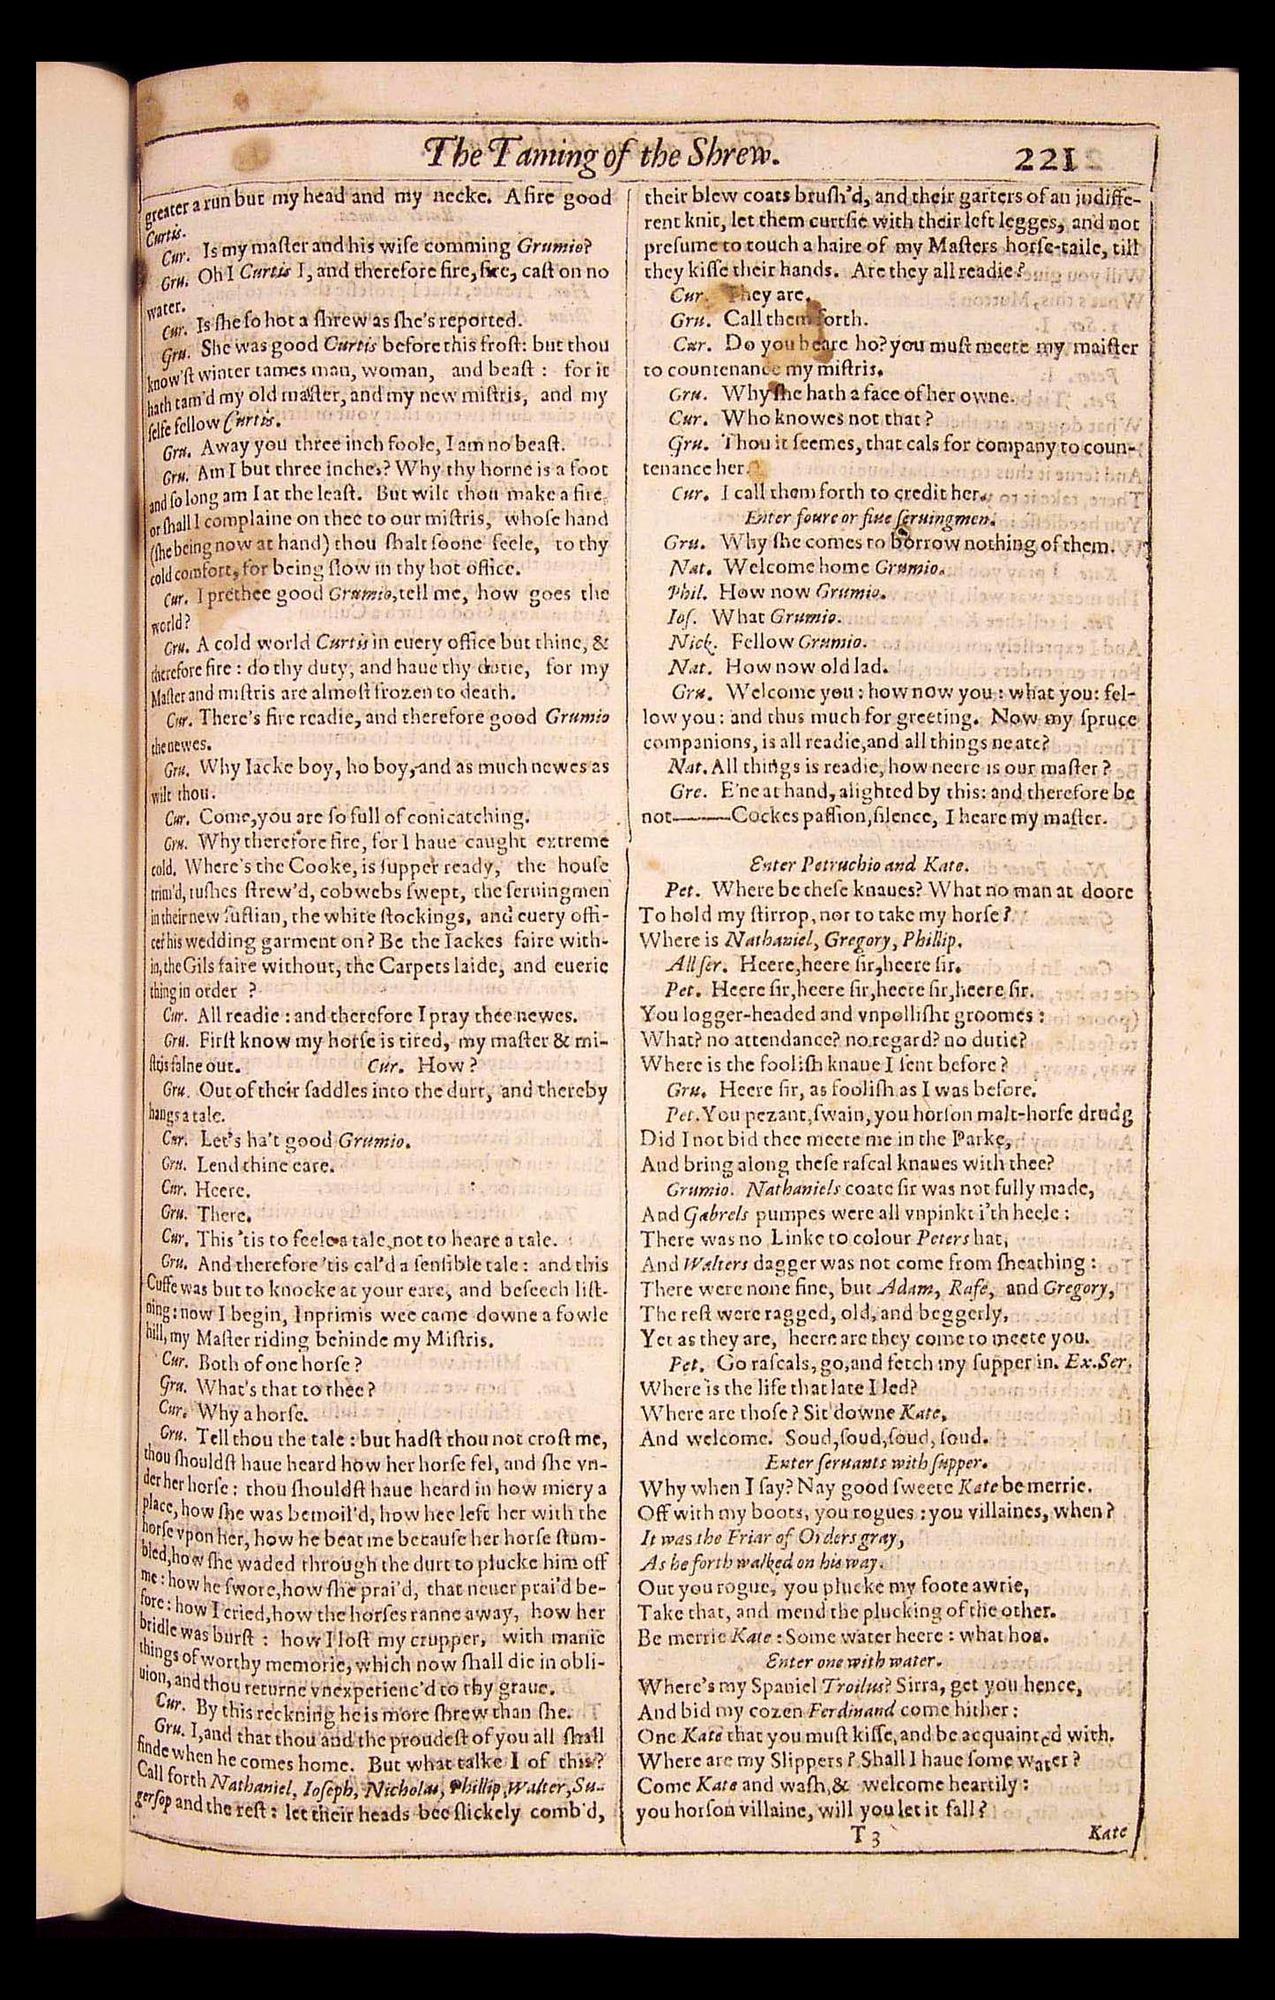 The Taming of the Shrew.
221
greater a run but my head and my necke. A fire good
Curtis.
Cur. Is my master and his wife comming Grumio?
Gru. Oh I Curtis I, and therefore fire, fire, cast on no
water.
Cur. Is she so hot a shrew as she's reported.
Gru. She was good Curtis before this frost: but thou
know'st winter tames man, woman, and beast : for it
hath tam'd my old master, and my new mistris, and my
selfe fellow Curtis.
Gru. Away you three inch foole, I am no beast.
Gru. Am I but three inches? Why thy horne is a foot
and so long am I at the least. But wilt thou make a fire,
or shall I complaine on thee to our mistris, whose hand
(she being now at hand) thou shalt soone feele, to thy
cold comfort, for being slow in thy hot office.
Cur. I prethee good Grumio, tell me, how goes the
world?
Gru. A cold world Curtis in euery office but thine, &
therefore fire : do thy duty, and haue thy dutie, for my
Master and mistris are almost frozen to death.
Cur. There's fire readie, and therefore good Grumio
the newes.
Gru. Why Iacke boy, ho boy, and as much newes as
wilt thou.
Cur. Come, you are so full of conicatching.
Gru. Why therefore fire, for I haue caught extreme
cold. Where's the Cooke, is supper ready, the house
trim'd, rushes strew'd, cobwebs swept, the seruingmen
in their new fustian, the white stockings, and euery offi-
cer his wedding garment on? Be the Iackes faire with-
in, the Gils faire without, the Carpets laide, and euerie
thing in order ?
Cur. All readie : and therefore I pray thee newes.
Gru. First know my horse is tired, my master & mi-
stris falne out. Cur. How?
Gru. Out of their saddles into the durt, and thereby
hangs a tale.
Cur. Let's ha't good Grumio.
Gru. Lend thine eare.
Cur. Heere.
Gru. There.
Cur. This 'tis to feele a tale, not to heare a tale.
Gru. And therefore 'tis cal'd a sensible tale : and this
Cuffe was but to knocke at your eare, and beseech list-
ning : now I begin, Inprimis wee came downe a fowle
hill, my Master riding behinde my Mistris.
Cur. Both of one horse?
Gru. What's that to thee?
Cur. Why a horse.
Gru. Tell thou the tale : but hadst thou not crost me,
thou shouldst haue heard how her horse fel, and she vn-
der her horse : thou shouldst haue heard in how miery a
place, how she was bemoil'd, how hee left her with the
horse vpon her, how he beat me because her horse stum-
bled, how she waded through the durt to plucke him off
me : how he swore, how she prai'd, that neuer prai'd be-
fore : how I cried, how the horses ranne away, how her
bridle was burst : how I lost my crupper, with manie
things of worthy memorie, which now shall die in obli-
uion, and thou returne vnexperienc'd to thy graue.
Cur. By this reckning he is more shrew than she.
Gru. I, and that thou and the proudest of you all shall
finde when he comes home. But what talke I of this?
Call forth Nathaniel, Ioseph, Nicholas, Phillip, Walter, Su-
gersop and the rest : let their heads bee slickely comb'd,
their blew coats brush'd, and their garters of an indiffe-
rent knit, let them curtsie with their left legges, and not
presume to touch a haire of my Masters horse-taile, till
they kisse their hands. Are they all readie?
Cur. They are.
Gru. Call them forth.
Cur. Do you heare ho? you must meete my maister
to countenance my mistris.
Gru. Why she hath a face of her owne.
Cur. Who knowes not that?
Gru. Thou it seemes, that cals for company to coun-
tenance her.
Cur. I call them forth to credit her.
Enter foure or fiue seruingmen.
Gru. Why she comes to borrow nothing of them.
Nat. Welcome home Grumio.
Phil. How now Grumio.
Ios. What Grumio.
Nick. Fellow Grumio.
Nat. How now old lad.
Gru. Welcome you : how now you : what you : fel-
low you : and thus much for greeting. Now my spruce
companions, is all readie, and all things neate?
Nat. All things is readie, how neere is our master?
Gre. E'ne at hand, alighted by this : and therefore be
not——Cockes passion, silence, I heare my master.
Enter Petruchio and Kate.
Pet. Where be these knaues? What no man at doore
To hold my stirrop, nor to take my horse?
Where is Nathaniel, Gregory, Phillip.
All ser. Heere, heere sir, heere sir.
Pet. Heere sir, heere sir, heere sir, heere sir.
You logger-headed and vnpollisht groomes :
What? no attendance? no regard? no dutie?
Where is the foolish knaue I sent before?
Gru. Heere sir, as foolish as I was before.
Pet. You pezant, swain, you horson malt-horse drudg
Did I not bid thee meete me in the Parke,
And bring along these rascal knaues with thee?
Grumio. Nathaniels coate sir was not fully made,
And Gabrels pumpes were all vnpinkt i'th heele :
There was no Linke to colour Peters hat,
And Walters dagger was not come from sheathing :
There were none fine, but Adam, Rafe, and Gregory,
The rest were ragged, old, and beggerly,
Yet as they are, heere are they come to meete you.
Pet. Go rascals, go, and fetch my supper in. Ex. Ser.
Where is the life that late I led?
Where are those? Sit downe Kate,
And welcome. Soud, soud, soud, soud.
Enter seruants with supper.
Why when I say? Nay good sweete Kate be merrie.
Off with my boots, you rogues : you villaines, when?
It was the Friar of Orders gray,
As he forth walked on his way.
Out you rogue, you plucke my foote awrie,
Take that, and mend the plucking of the other.
Be merrie Kate : Some water heere : what hoa.
Enter one with water.
Where's my Spaniel Troilus? Sirra, get you hence,
And bid my cozen Ferdinand come hither :
One Kate that you must kisse, and be acquainted with.
Where are my Slippers? Shall I haue some water?
Come Kate and wash, & welcome heartily :
you horson villaine, will you let it fall?
T 3
Kate